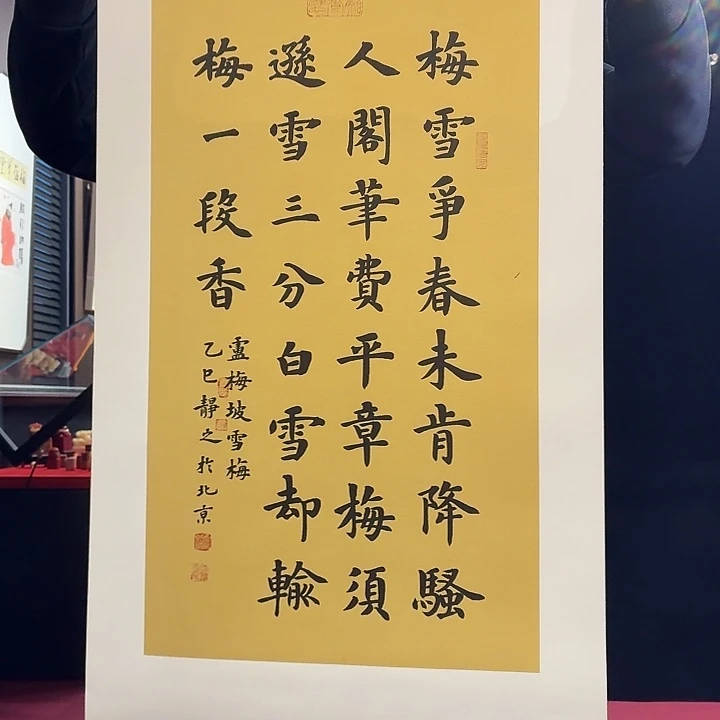 梅雪爭春未肯降騷
人閣筆費平章梅須
遜雪三分白雪却輸
梅一段香
盧梅坡雪梅
乙巳靜之於北京